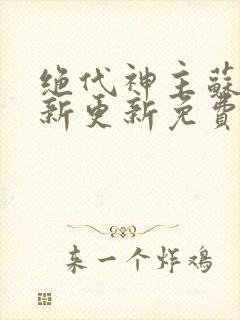 绝代神主蘇
新更新免費
来一个炸鸡